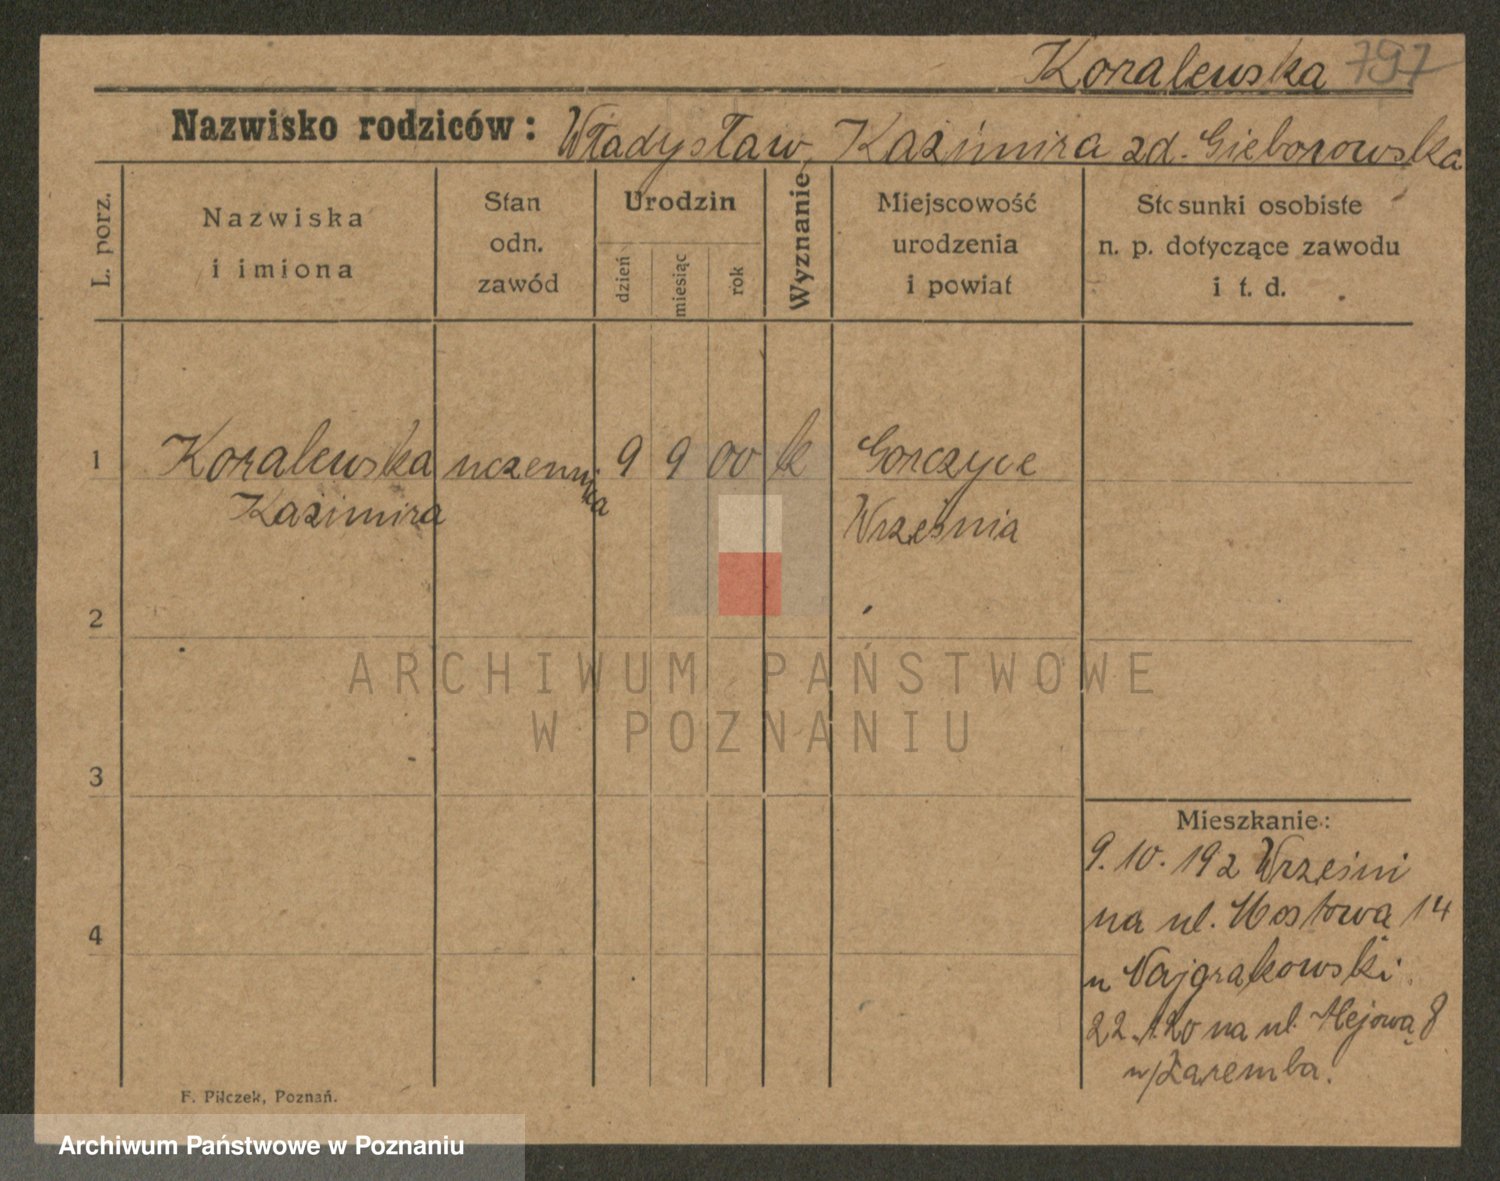 Koralewska 797
Nazwisko rodziców: Władysław, Kaźimira zd. Gieborowska
L. porz.
Nazwiska
i imiona
Stan
odn.
zawód
Urodzin
dzień
miesiąc
rok
Wyznanie
Miejscowość
urodzenia
i powiat
Stosunki osobiste
n. p. dotyczące zawodu
i t. d.
1 Koralewska uczennica 9 9 00 k Gorczyce
Kaźimira Września
2
ARCHIWUM PAŃSTWOWE
W POZNANIU
3
Mieszkanie:
9. 10. 192 Wrześni
na ul. Mostowa 14
4
u Najgrakowski
22. 1. 20 na ul. Alejową 8
u/Zaremba.
F. Pilczek, Poznań.
Archiwum Państwowe w Poznaniu